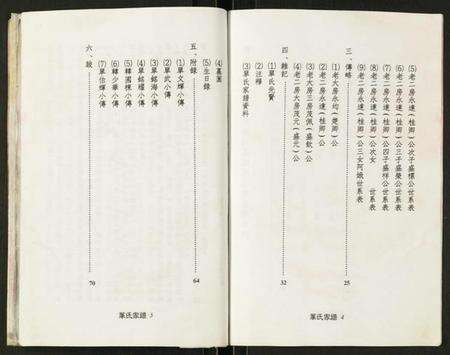 (5)老二房永達(桂卿)公次子盛標公世系表
(6)老二房永達(桂卿)公三子盛榮公世系表
(7)老二房永達(桂卿)公四子盛祥公世系表
(8)老二房永達(桂卿)公次女 世系表
(9)老二房永達(桂卿)公三女阿娥世系表
三、傳略 25
(1)老大房永均(建卿)公
(2)老二房永達(桂卿)公
(3)老大房三房茂佩(盛欽)公
(4)老二房大房茂元(盛元)公
四、雜記 32
(1)單氏先賢
(2)注釋
(3)單氏家譜資料
單氏家譜 4
(4)墓園
(5)生日錄
五、附錄 64
(1)單文輝小傳
(2)單武小傳
(3)單銘海小傳
(4)單銘耀小傳
(5)韓國棟小傳
(6)韓少華小傳
(7)單怡輝小傳
六、跋 70
單氏家譜 3